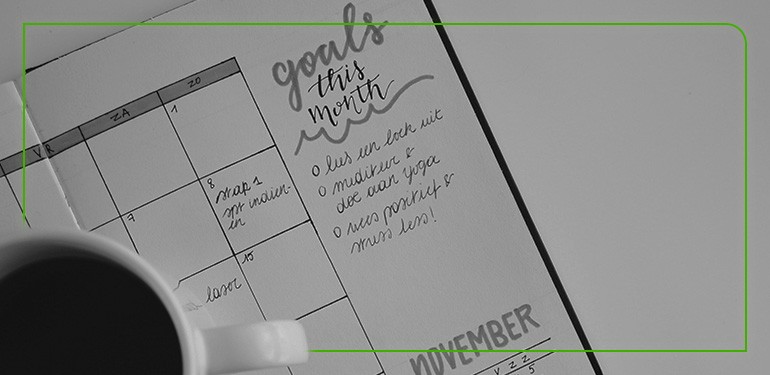 goals
this
month
VR ZA ZO
1
o lees een boek uit
o mediteer &
doe aan yoga
o wees positief &
stress less!
7 8
stap 1
indien-
en
15
laser
NOVEMBER
V Z Z
5